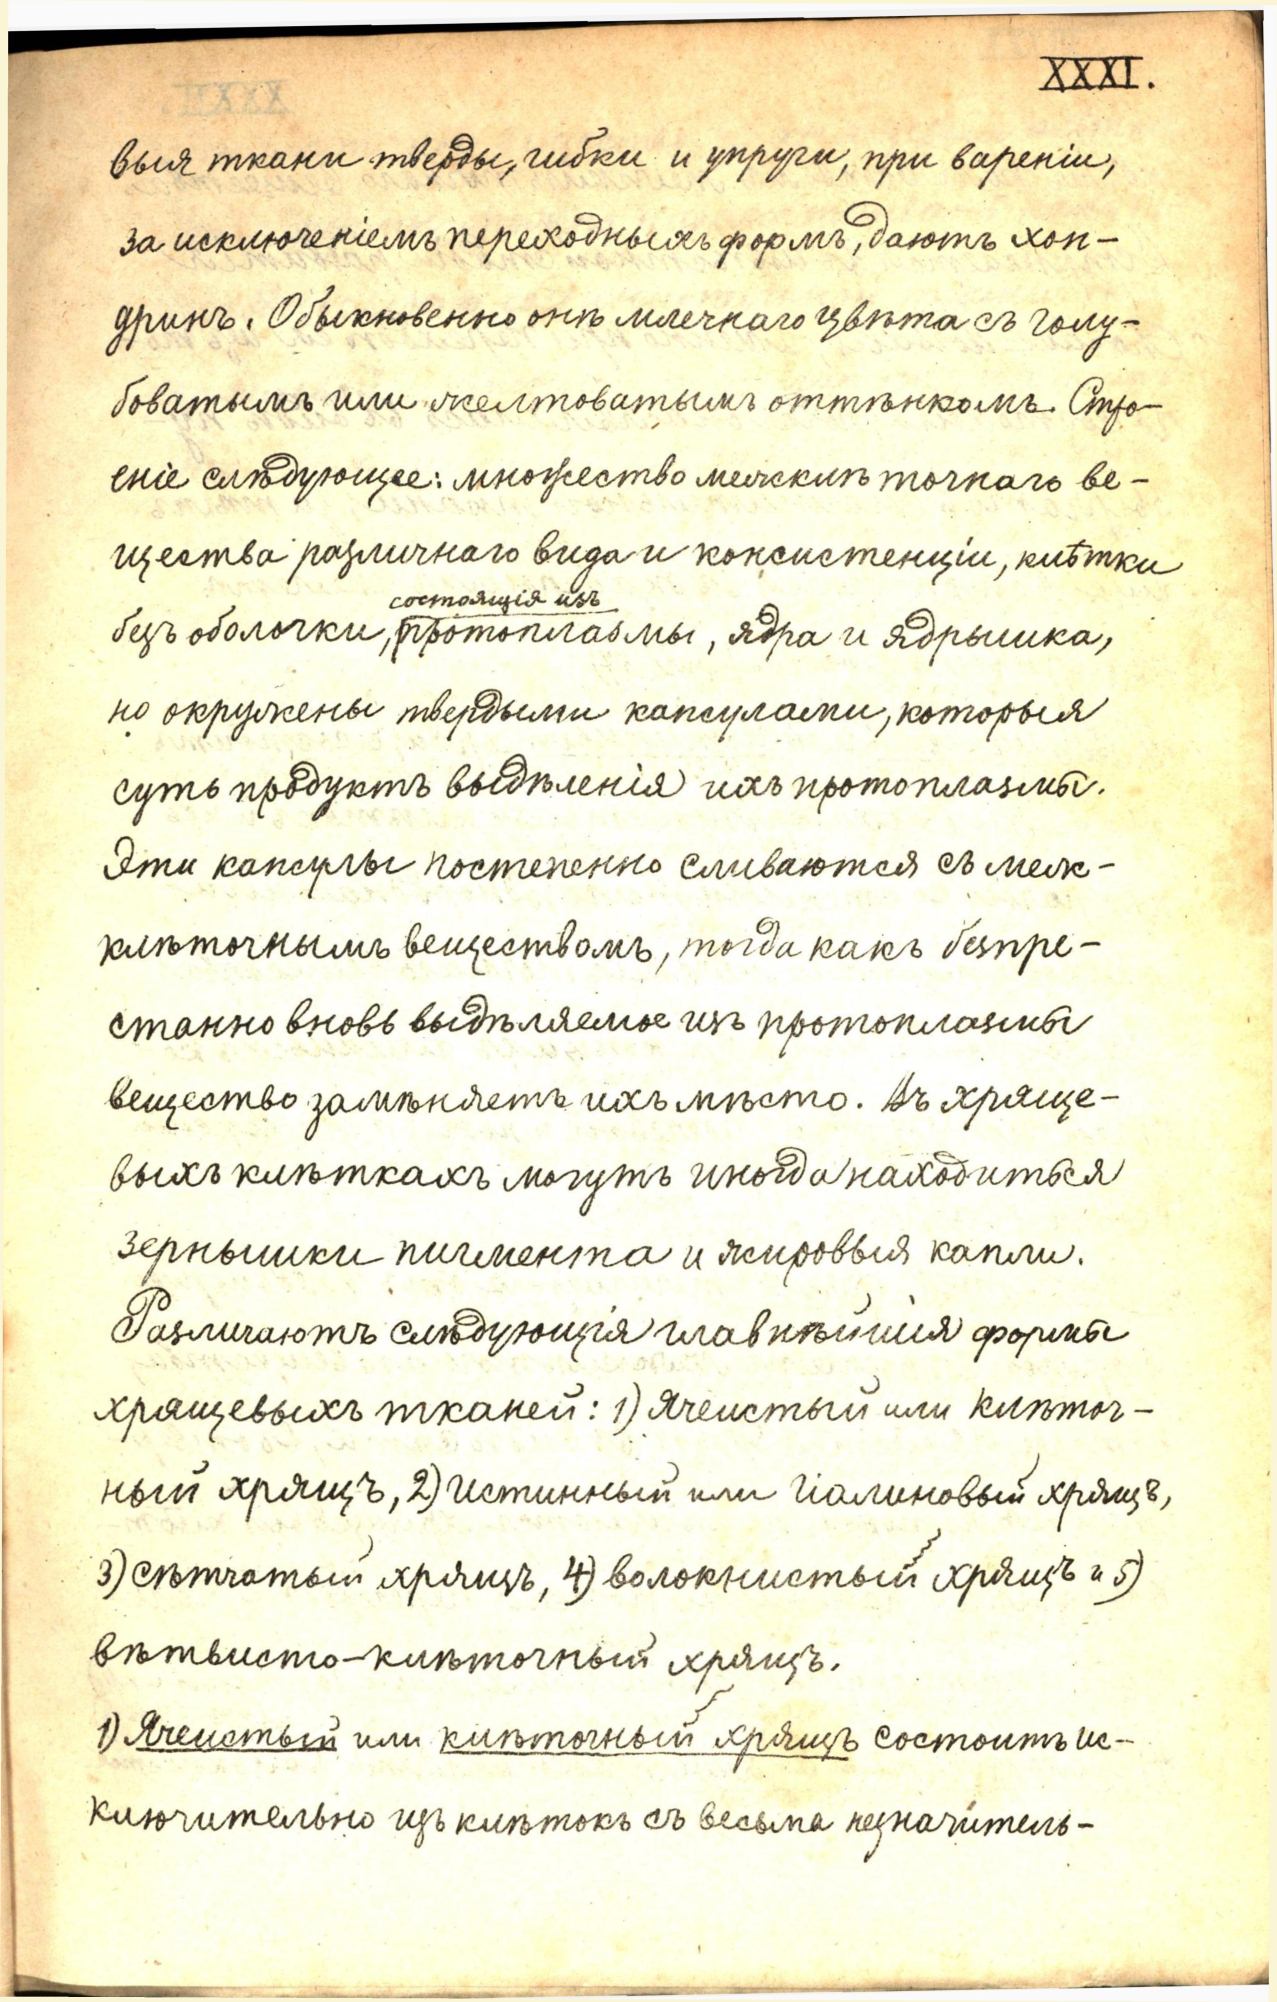 XXXI.
выя ткани тверды, гибки и упруги, при вареніи,
за исключеніемъ переходныхъ формъ, даютъ хон-
дринъ. Обыкновенно онѣ млечнаго цвѣта съ голу-
боватымъ или желтоватымъ оттѣнкомъ. Стро-
еніе слѣдующее: множество межклѣточнаго ве-
щества различнаго вида и консистенціи, клѣтки
состоящія изъ
безъ оболочки, протоплазмы, ядра и ядрышка,
но окружены твердыми капсулами, которыя
суть продуктъ выдѣленія ихъ протоплазмы.
Эти капсулы постепенно сливаются съ меж-
клѣточнымъ веществомъ, тогда какъ безпре-
станно вновь выдѣляемое изъ протоплазмы
вещество замѣняетъ ихъ мѣсто. Въ хряще-
выхъ клѣткахъ могутъ иногда находиться
зернышки пигмента и жировыя капли.
Различаютъ слѣдующія главнѣйшія формы
хрящевыхъ тканей: 1) Ячеистый или клѣточ-
ный хрящъ, 2) Истинный или гіалиновый хрящъ,
3) сѣтчатый хрящъ, 4) волокнистый хрящъ и 5)
вѣтвисто-клѣточный хрящъ.
1) Ячеистый или клѣточный хрящъ состоитъ ис-
ключительно изъ клѣтокъ съ весьма незначитель-